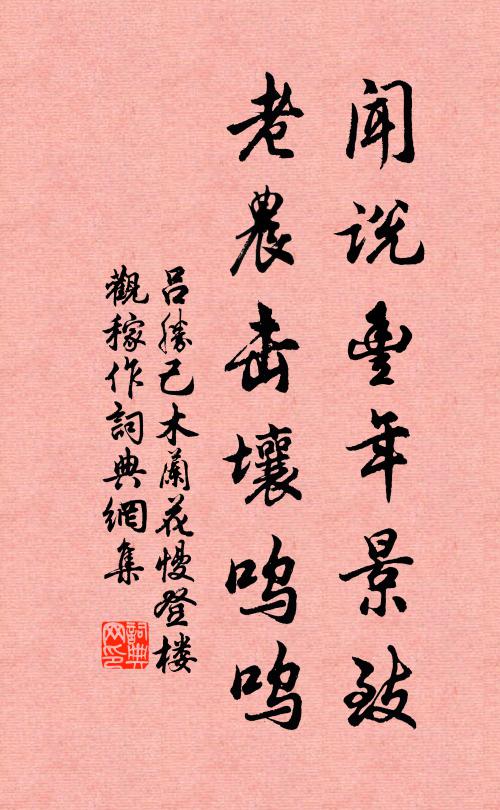 闻说豊年景致
老農击壤呜呜
吕勝己木蘭花慢登楼
觀稼作詞典網集
詞典
网印